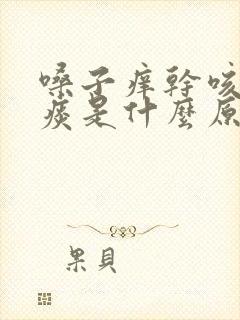 嗓子痒幹咳
痰是什麼原
果貝